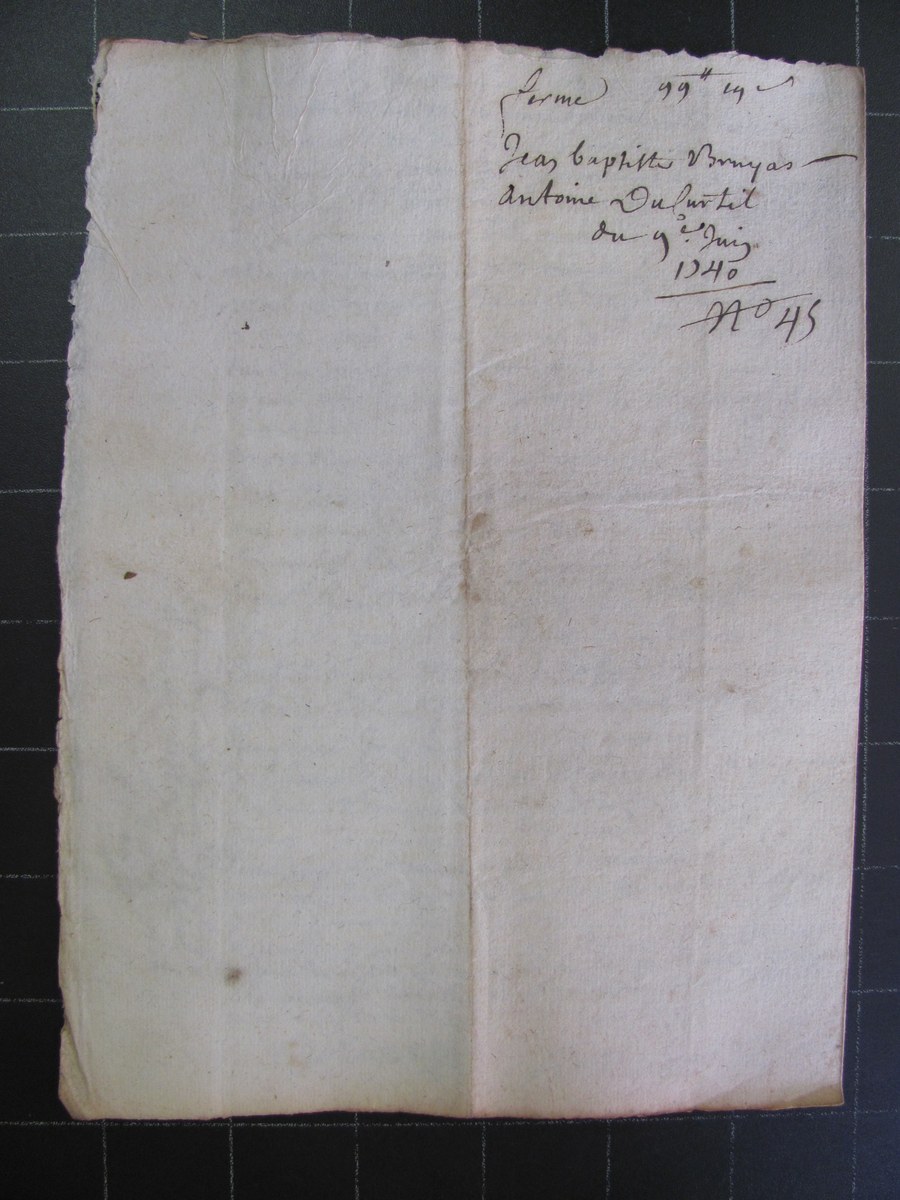 ferme 99tt 19 s
Jean baptiste Bruyas
antoine DuCurtil
du 9e. Juin
1740
No 45